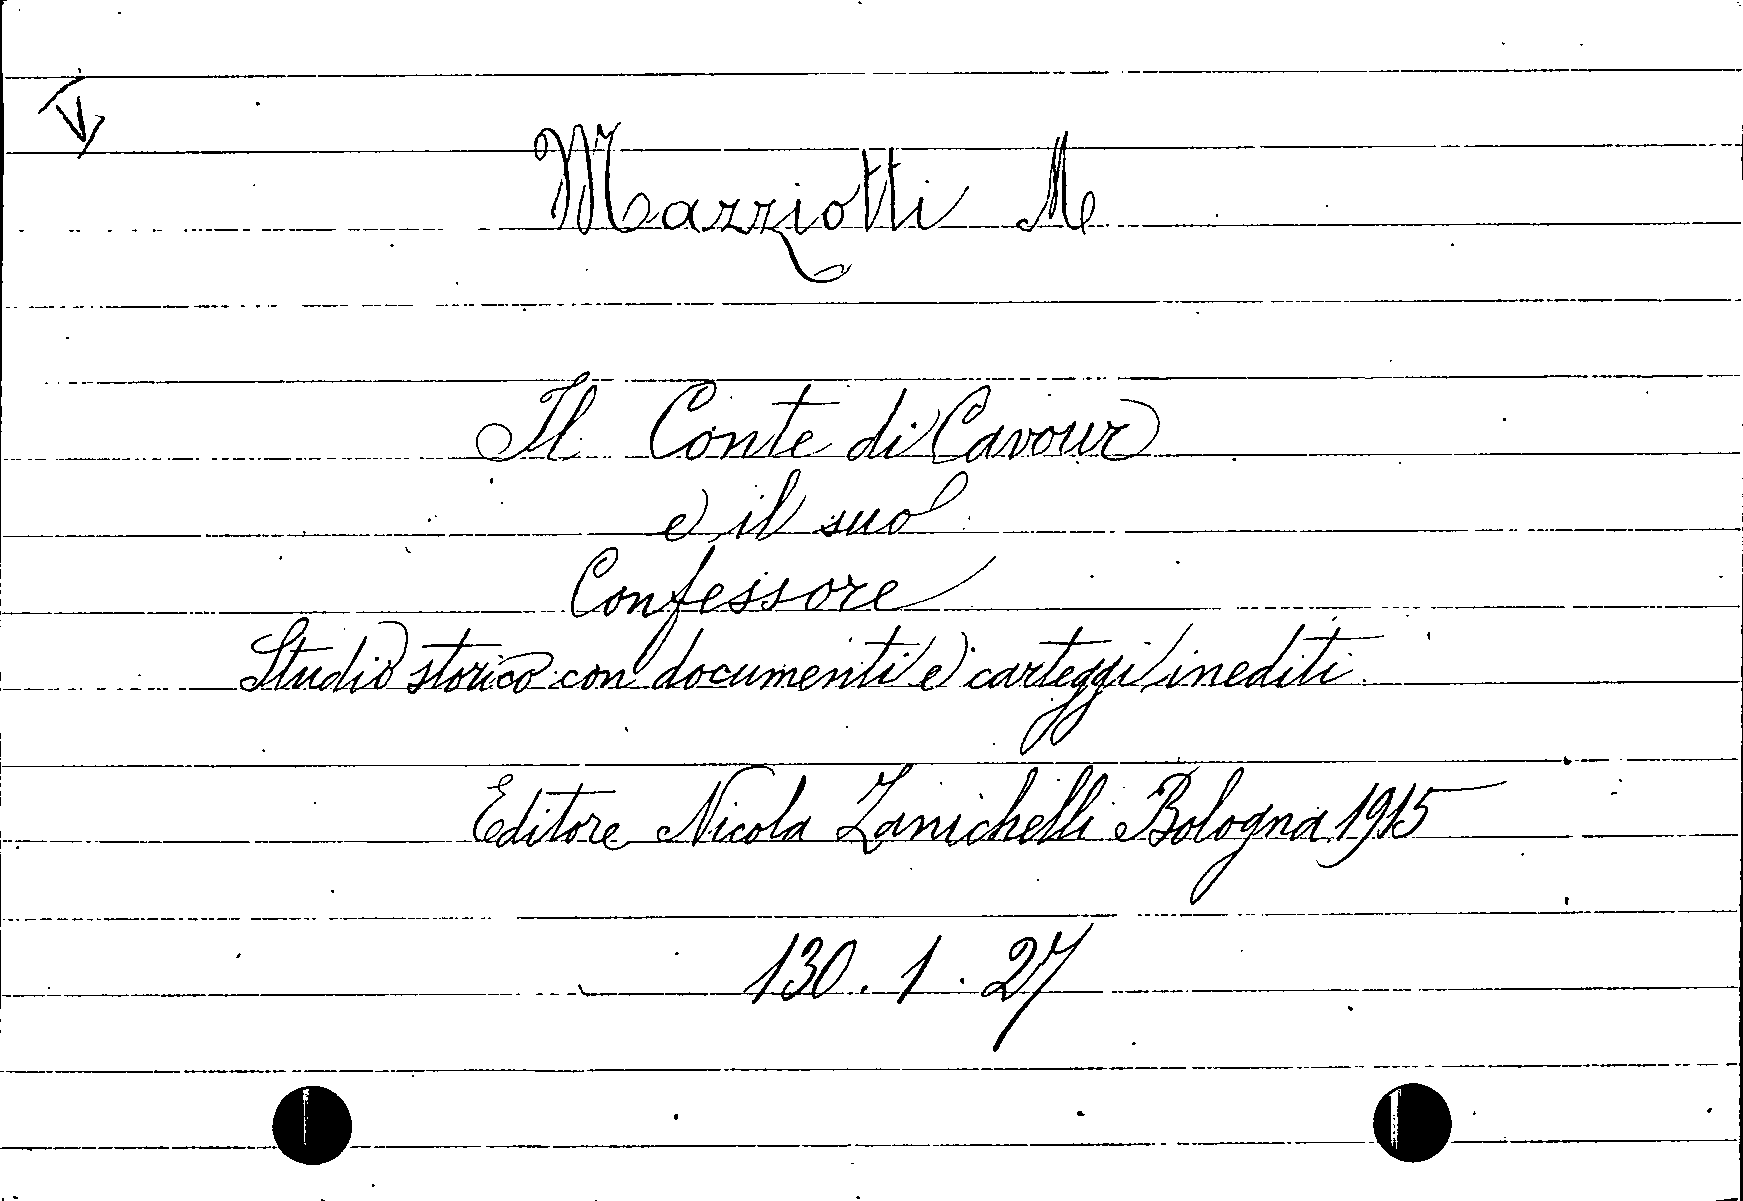 Mazziotti M
Il Conte di Cavour
e il suo
Confessore
Studio storico con documenti e carteggi inediti
Editore Nicola Zanichelli Bologna 1915
130. 1. 27